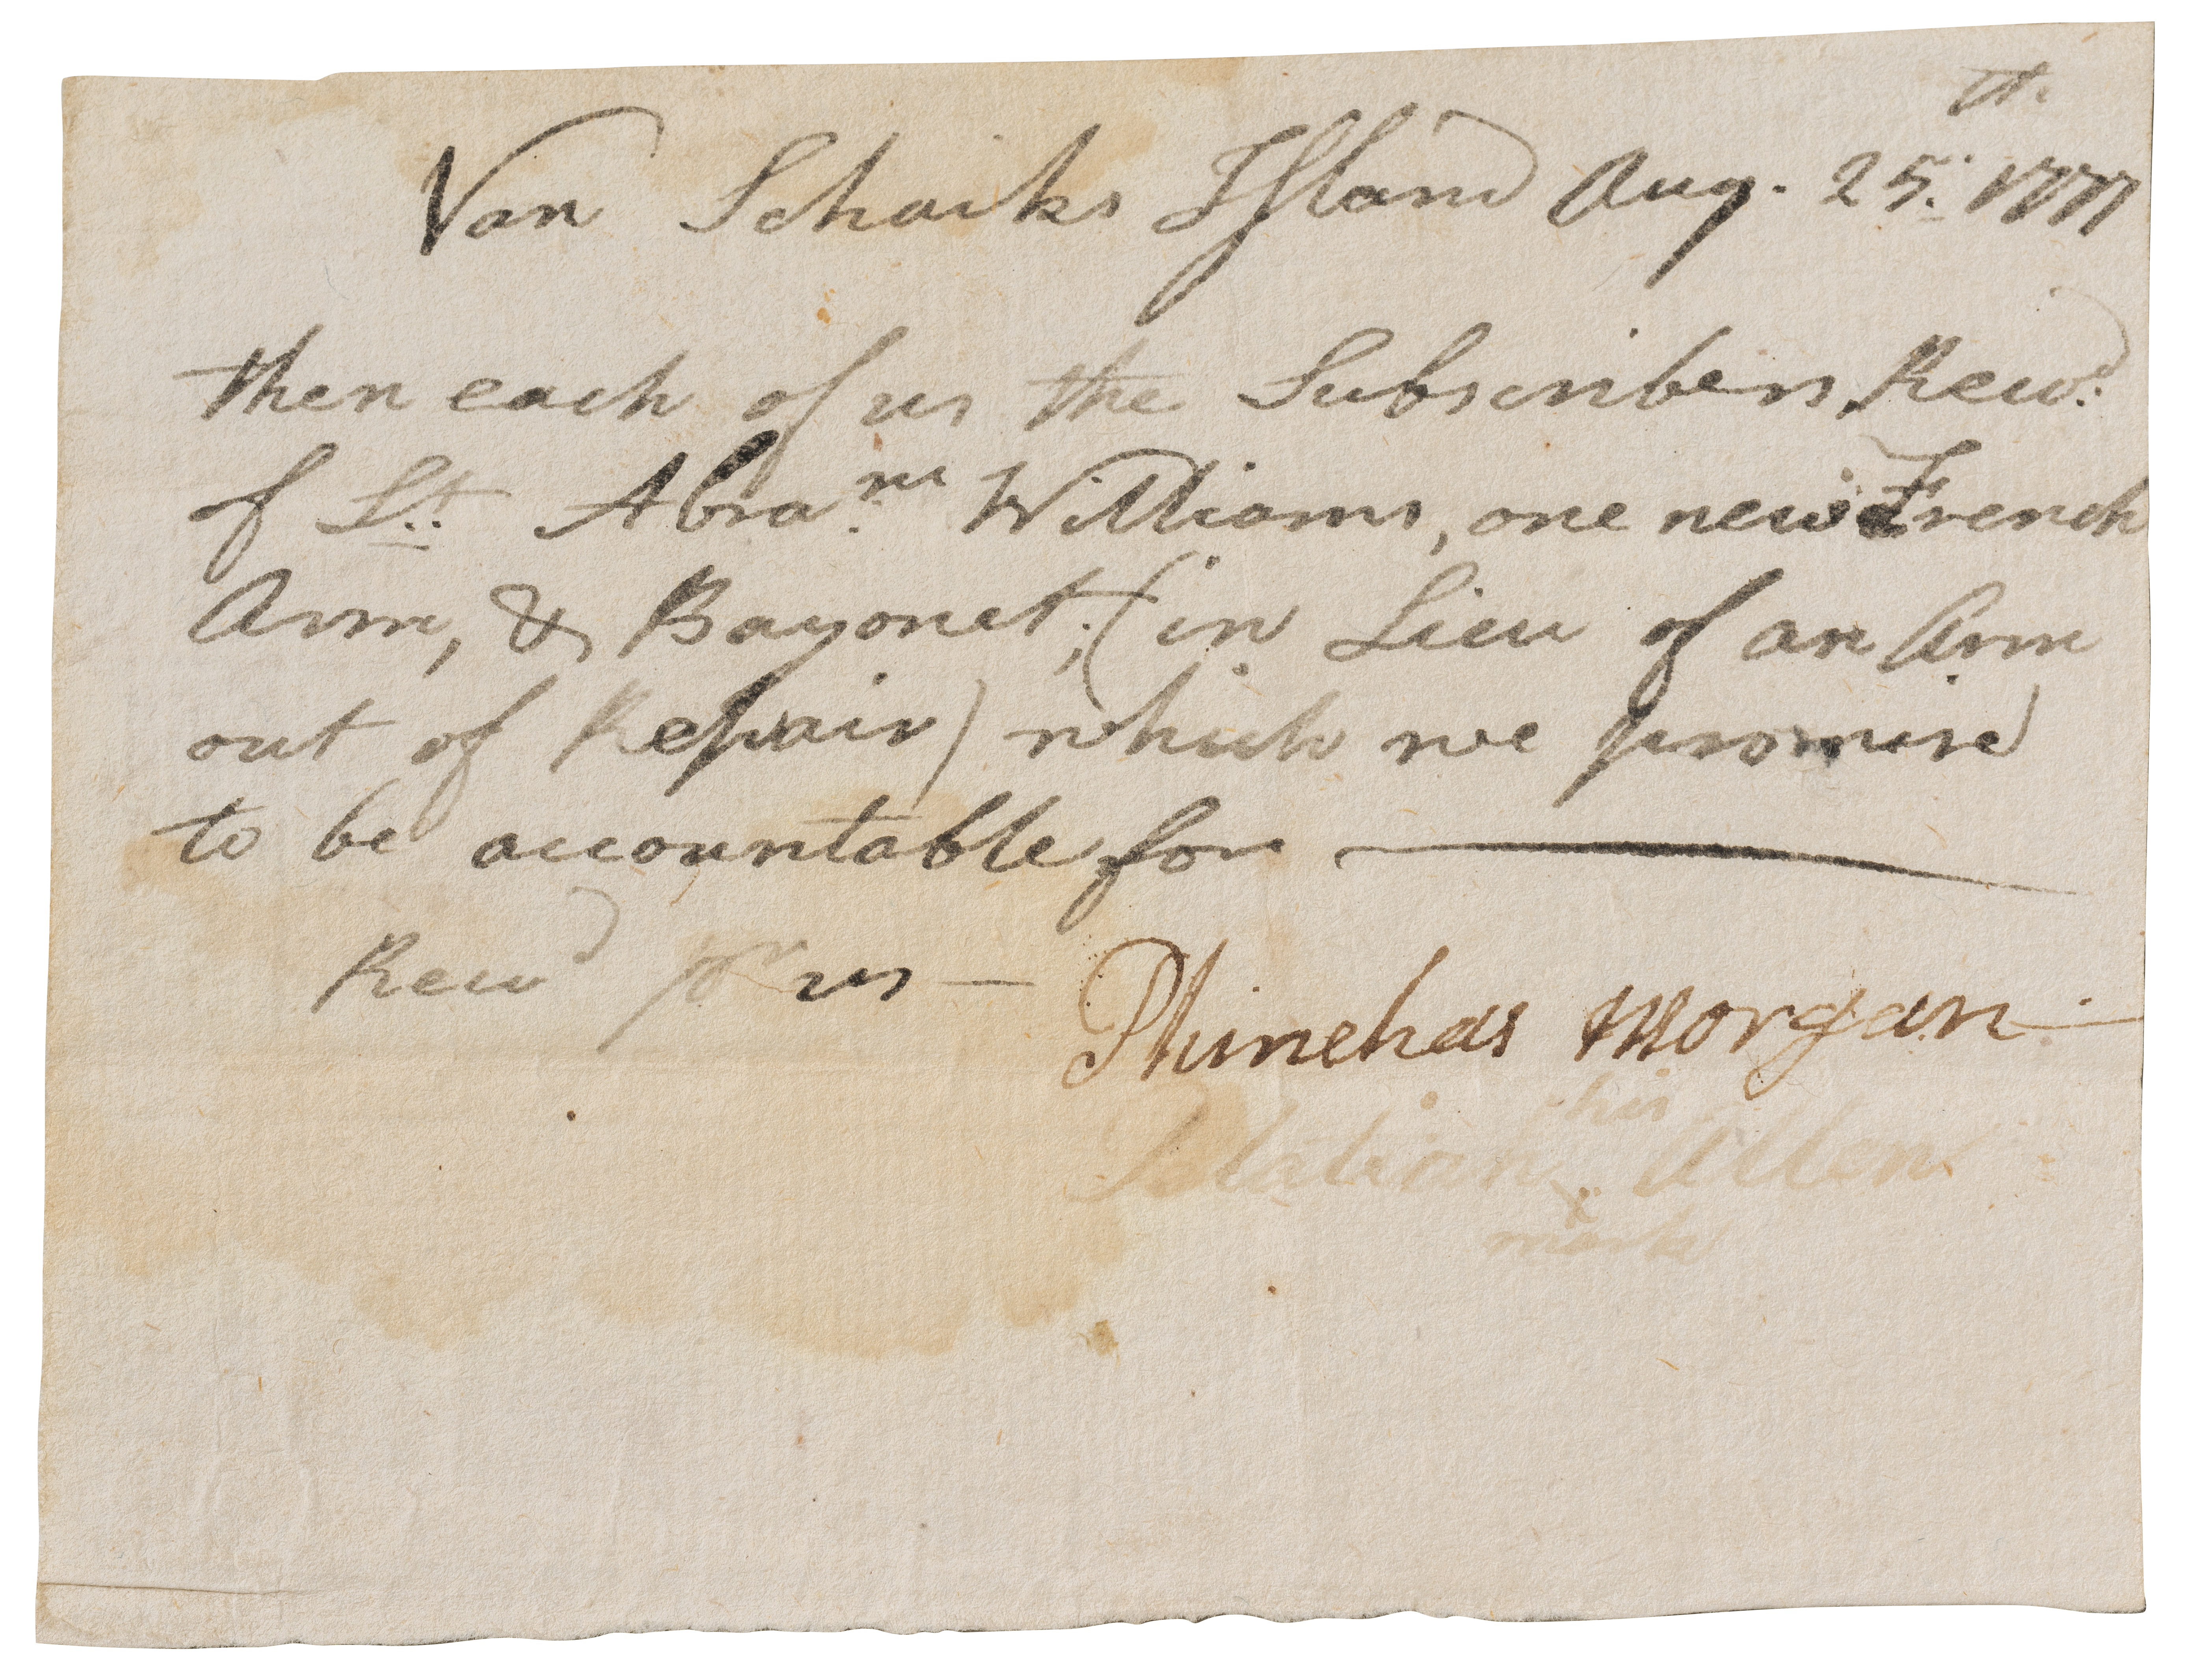 Van Schaiks Island Aug. 25.th 1777
then each of us the Subscribers Recd.
of Lt. Abram Williams, one new French
Arm, & Bayonet; (in Lieu of an Arm
out of Repair) which we promise
to be accountable for —
Recd pr us — Phinehas Morgan —
his
Allen
x
mark